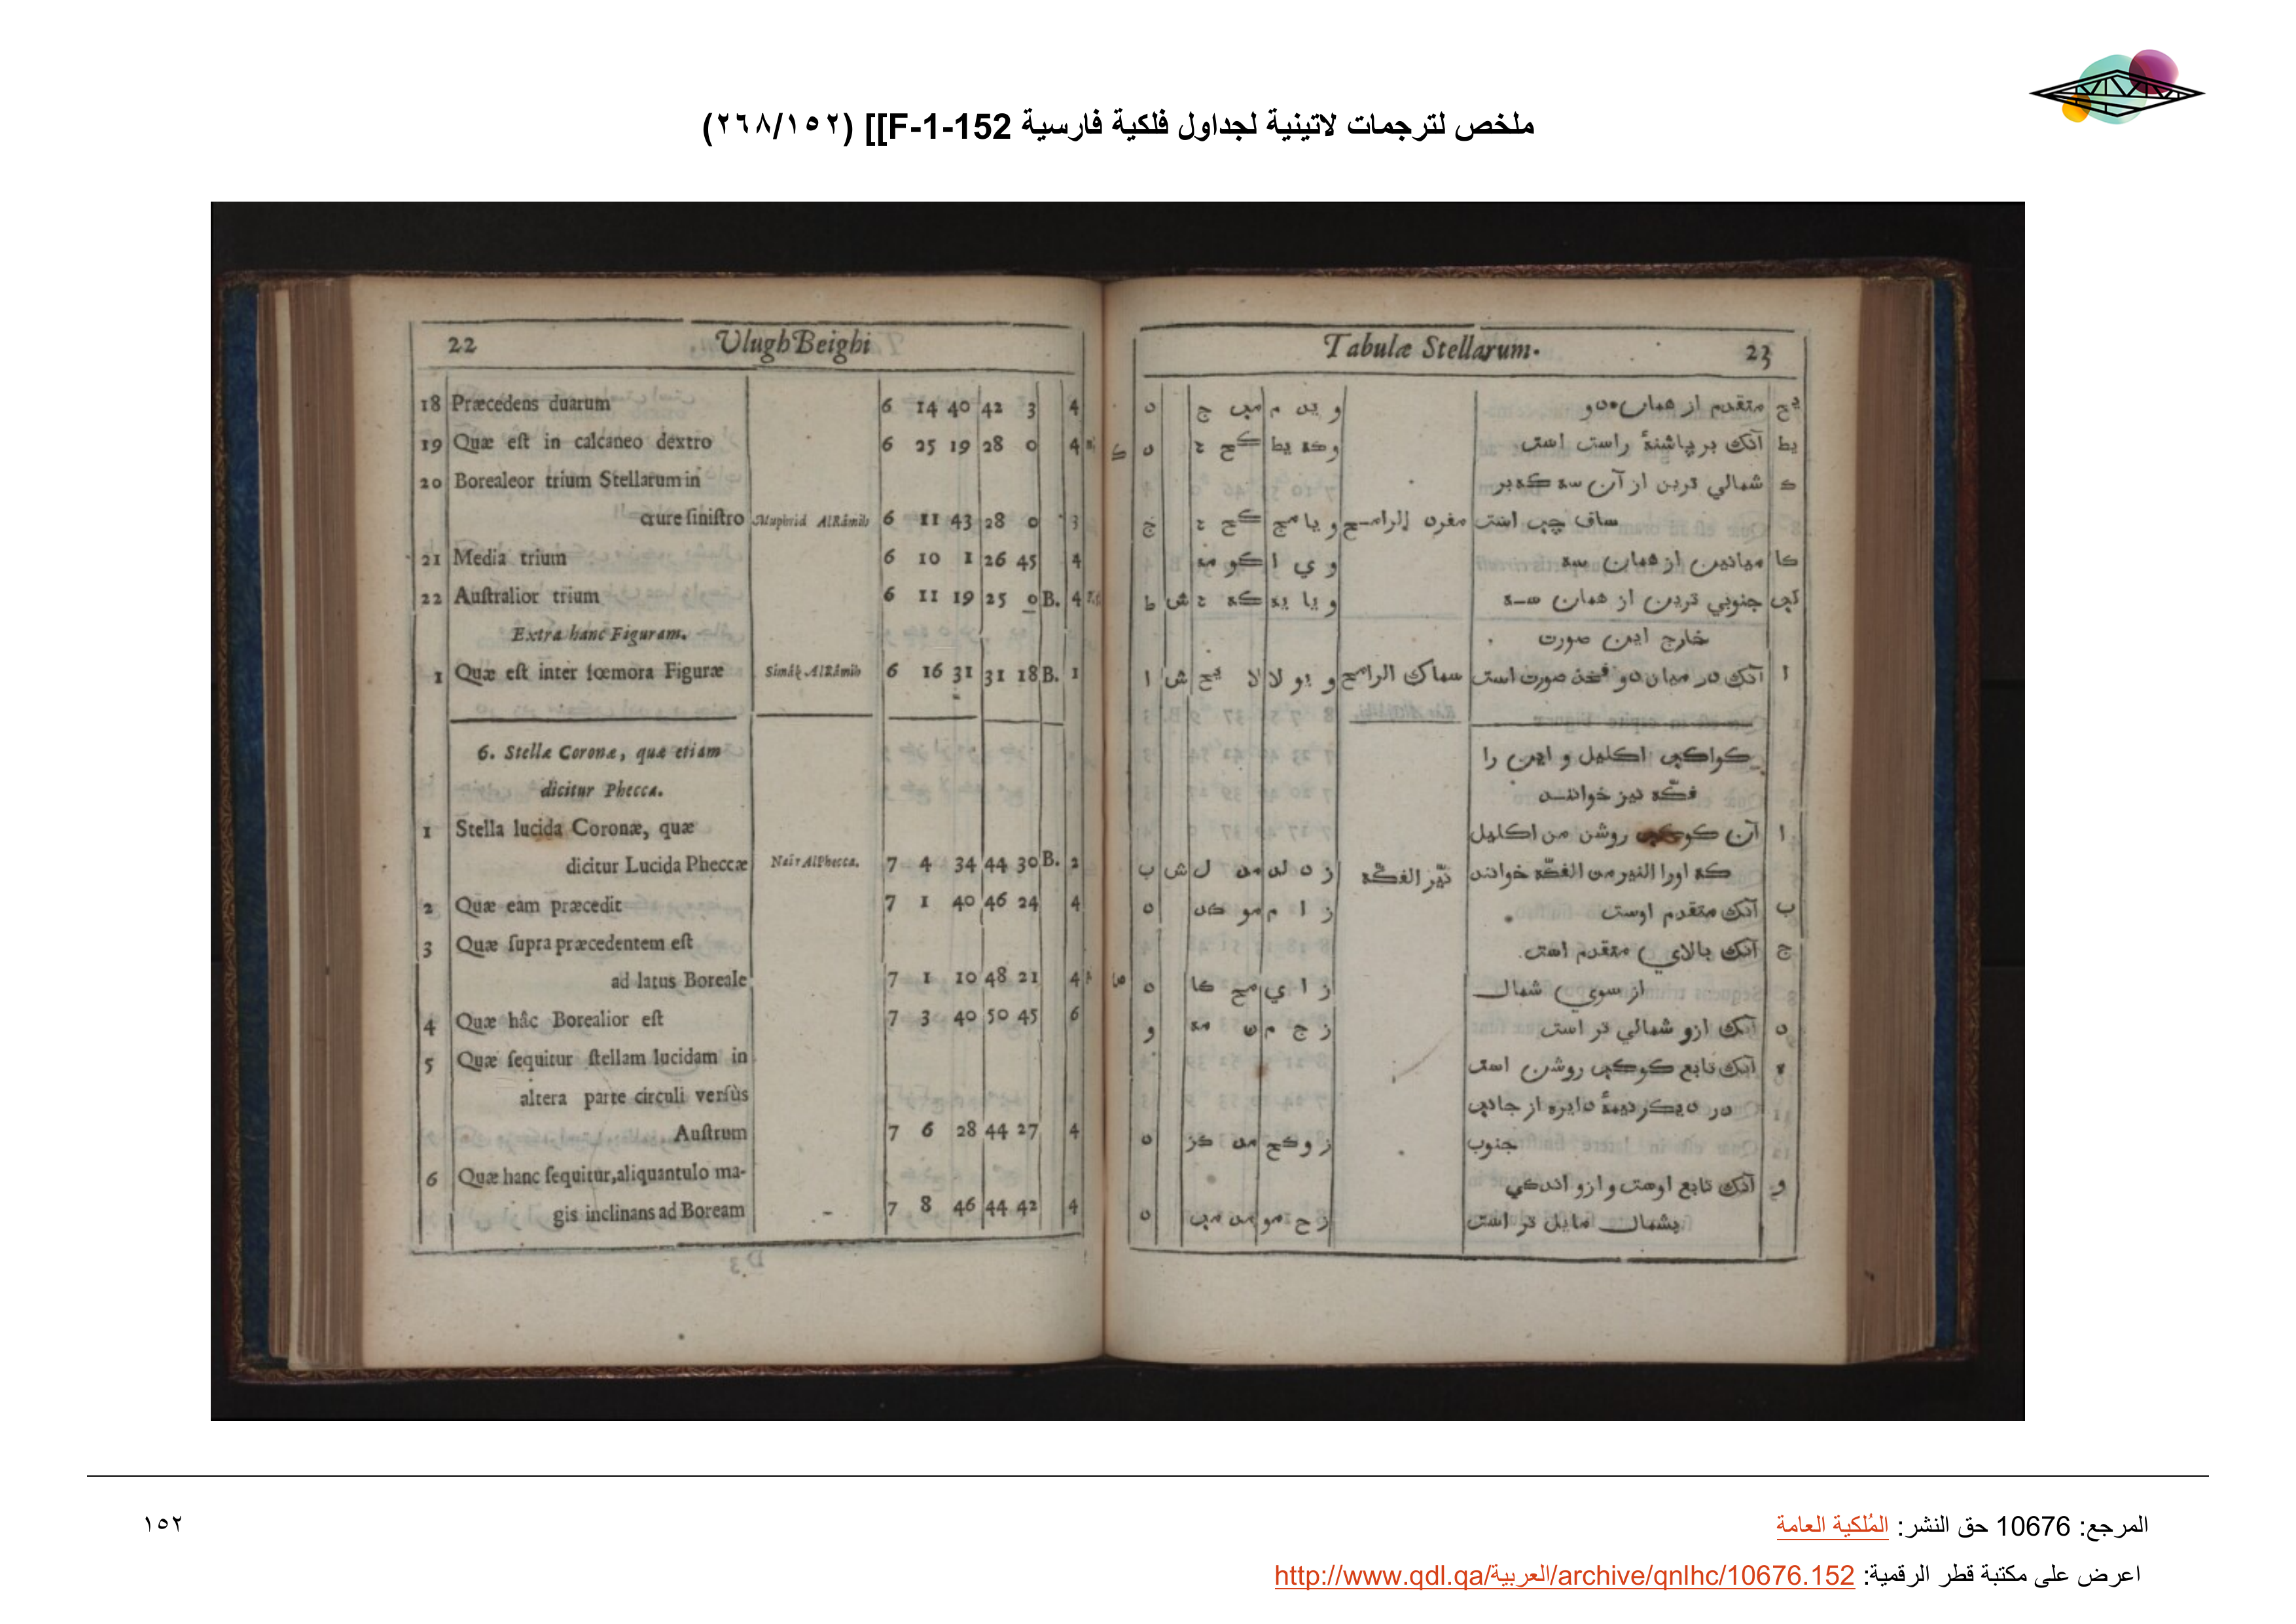 ملخص لترجمات لاتينية لجداول فلكية فارسية F-1-152]] (٢٦٨/١٥٢)
22 Ulugh Beighi
18 Præcedens duarum 6 14 40 42 3 4
19 Quæ est in calcaneo dextro 6 25 19 28 0 4
20 Borealeor trium Stellarum in
crure sinistro Muphrid AlRâmih 6 11 43 28 0 3
21 Media trium 6 10 1 26 45 4
22 Australior trium 6 11 19 25 0 B. 4
Extra hanc Figuram.
1 Quæ est inter fœmora Figuræ Simâk AlRâmih 6 16 31 31 18 B. 1
6. Stellæ Coronæ, quæ etiam
dicitur Phecca.
1 Stella lucida Coronæ, quæ
dicitur Lucida Pheccæ Nair AlPhecca. 7 4 34 44 30 B. 2
2 Quæ eam præcedit 7 1 40 46 24 4
3 Quæ supra præcedentem est
ad latus Boreale 7 1 10 48 21 4
4 Quæ hâc Borealior est 7 3 40 50 45 6
5 Quæ sequitur stellam lucidam in
altera parte circuli versùs
Austrum 7 6 28 44 27 4
6 Quæ hanc sequitur, aliquantulo ma-
gis inclinans ad Boream 7 8 46 44 42 4
D 3
Tabulæ Stellarum. 23
یح متقدم از همان دو و ید م مب ج د
یط آنک بر پاشنهٔ راست است و که یط کح د
ک شمالي ترین از آن سه که بر
ساق چپ است مفرد الرامح و یا مج کح ج
کا میانین از همان سه و ي ا کو مه
کب جنوبي ترین از همان سه و یا یط که ش
خارج این صورت
ا آنک در میان دو فخذ صورت است سماک الرامح و یو لا لا یح ش ا
کواکب اکلیل و این را
فکّه نیز خوانند
ا آن کوکب روشن من اکلیل
که اورا النیر من الفکّه خوانند نیّر الفکّه ز د لد مد ل ش ب
ب آنک متقدم اوست ز ا م مو کد د
ج آنک بالاي متقدم است
از سوي شمال ز ا ي مح کا د
د آنک ازو شمالي تر است ز ج م ن مه و
ه آنک تابع کوکب روشن است
در دیکر نیمهٔ دایره از جانب
جنوب ز و کح مد کز د
و آنک تابع اوست و ازو اندکي
بشمال مایل تر است ز ح مو مد مب د
المرجع: 10676 حق النشر: المُلكية العامة
اعرض على مكتبة قطر الرقمية: http://www.qdl.qa/العربية/archive/qnlhc/10676.152
١٥٢